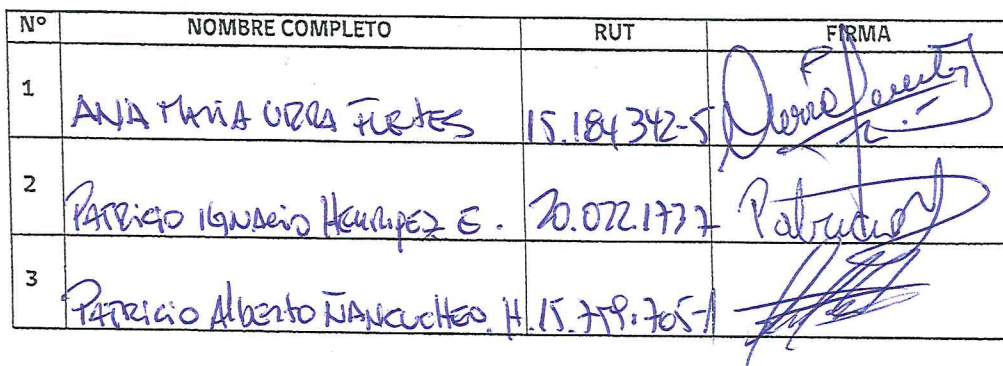 Nº NOMBRE COMPLETO RUT FIRMA
1 ANA MARÍA URRA FUENTES 15.184.342-5
2 PATRICIO IGNACIO HENRIPEZ E. 20.022.177-7 Patricio
3 PATRICIO AlbERTO ÑANCUCHEO. H. 15.759.705-1